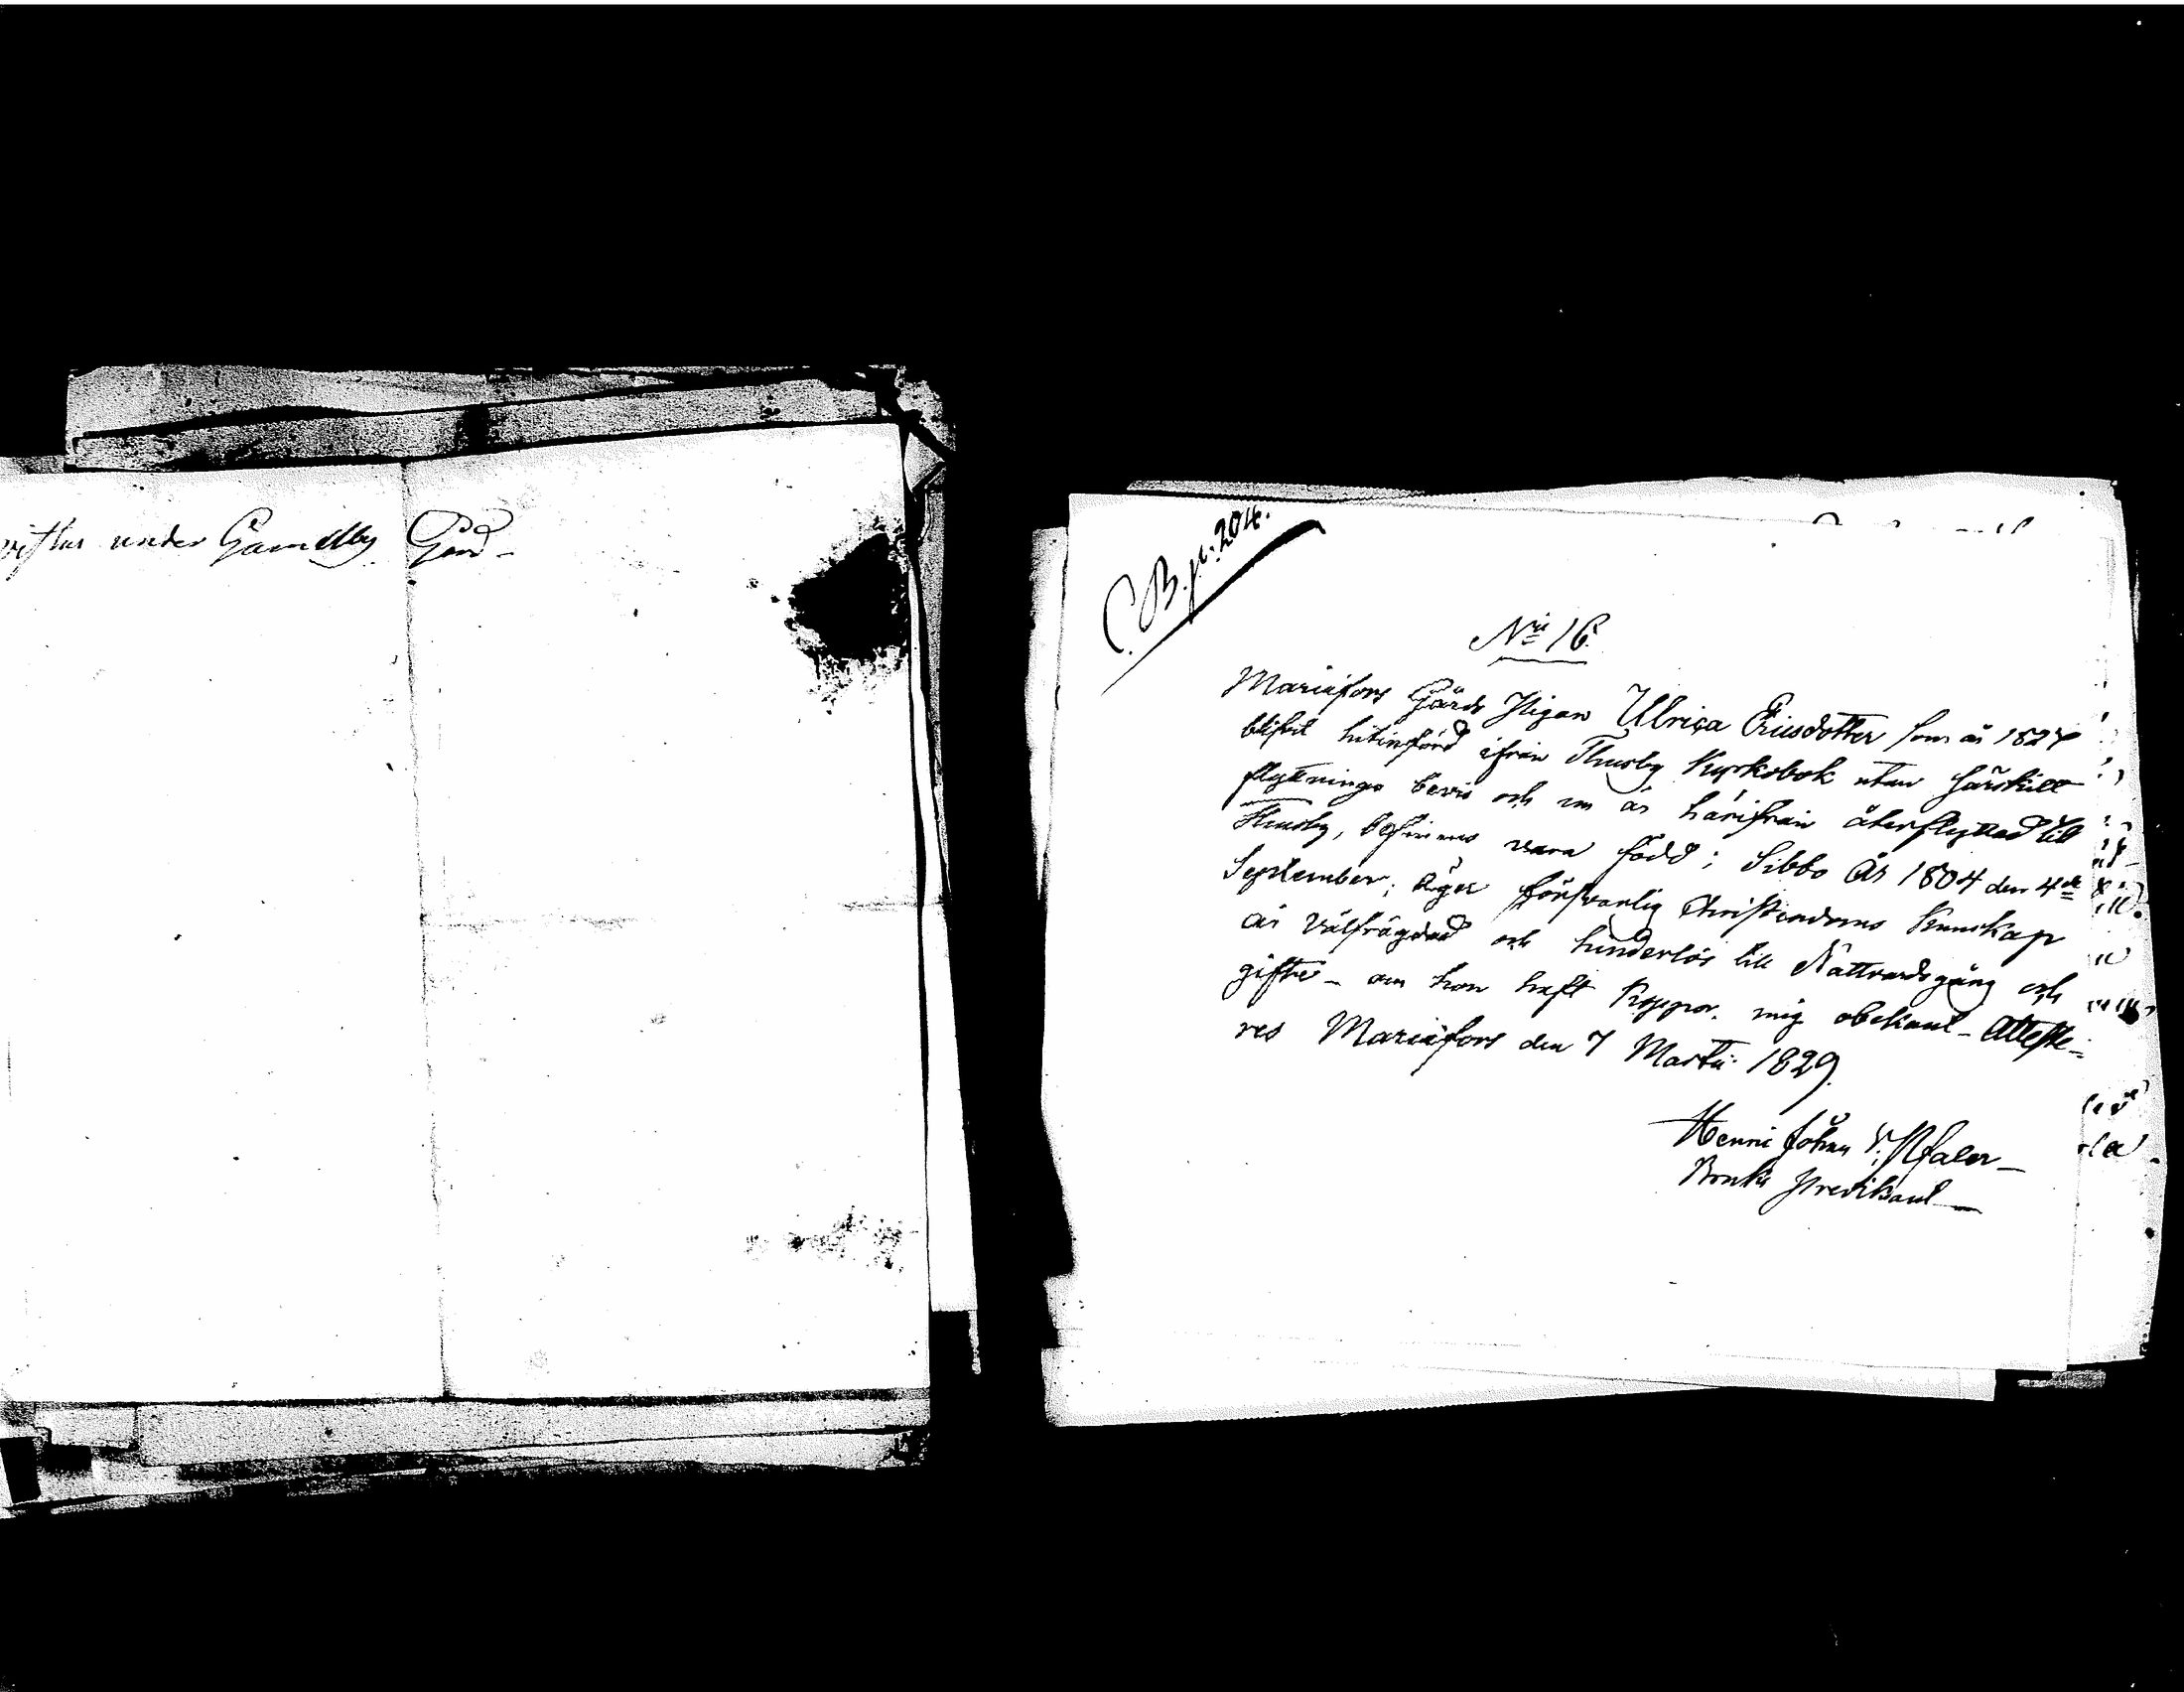 under Gammelby Gård -
C. B. p. 204.
N:ri 16.
Mariæfors Gårds Pigan Ulrica Ericsdotter som år 1827
blifvit hitinförd ifrån Thusby Kyrkobok utan särskilt
flyttnings bevis och nu är härifrån återflyttad till
Thusby, befinnes vara född i Sibbo År 1804 den 4de
September; äger försvarlig Christendoms Kunskap
är välfrägdad och hinderlös till Nattvardsgång och
gifte - om hon haft koppor, mig obekant - Atteste-
res Mariæfors den 7 Martii 1829.
Henric Johan V. Pfaler -
Bruks Predikant -